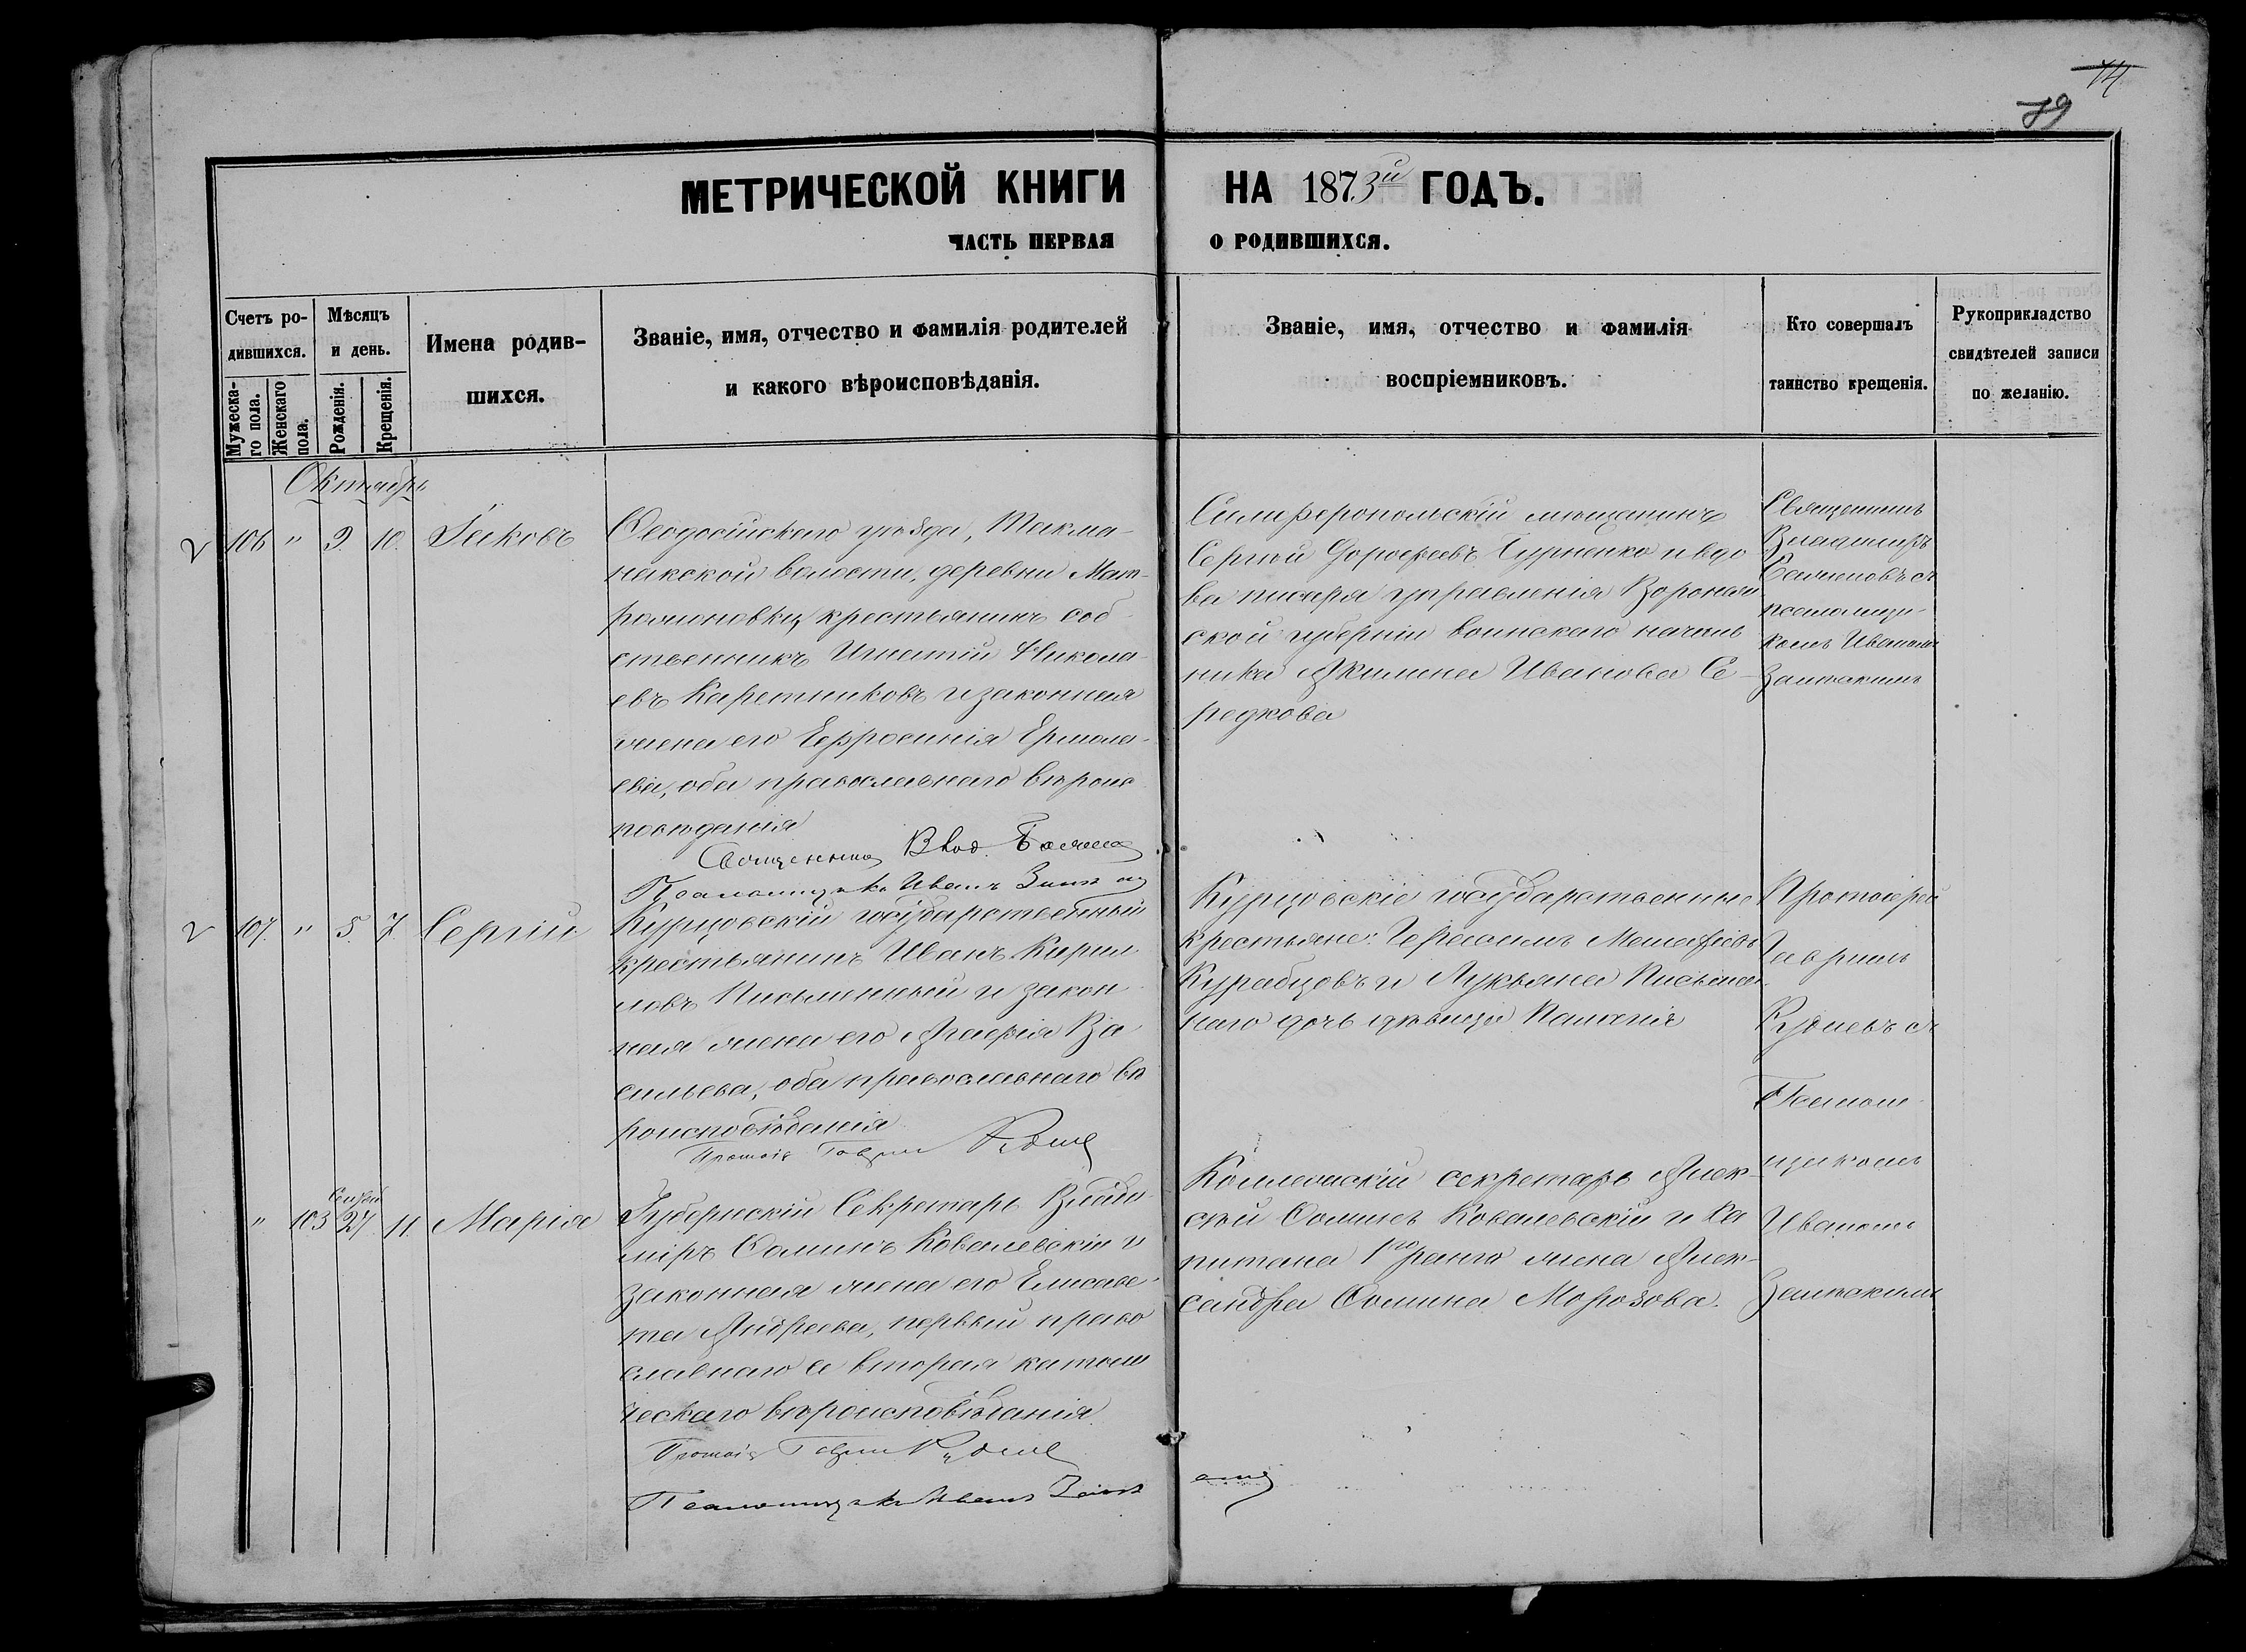 14
79
МЕТРИЧЕСКОЙ КНИГИ НА 1873й ГОДЪ.
ЧАСТЬ ПЕРВАЯ О РОДИВШИХСЯ.
Счетъ ро-
дившихся.
Мужеска-
го пола.
Женскаго
пола.
Мѣсяцъ
и день.
Рожденія.
Крещенія.
Имена родив-
шихся.
Званіе, имя, отчество и фамилія родителей
и какого вѣроисповѣданія.
Званіе, имя, отчество и фамилія
воспріемниковъ.
Кто совершалъ
таинство крещенія.
Рукоприкладство
свидѣтелей записи
по желанію.
Октябрь
106 " 9. 10. Іаковъ
Ѳеодосійскаго уѣзда,
волости, деревни Мат-
крестьянинъ соб-
ственникъ Игнатій Никола-
евъ Каретниковъ и законная
жена его Евфросинія Ермола-
ева, оба православнаго вѣроис
повѣданія
Священникъ Влад.
Псаломщикъ Иванъ
Симферопольскій мѣщанинъ
Сергѣй Дорофеевъ и вдо
ва писаря управленія Воронеж
ской губерніи воинскаго началь
ника Акилина Иванова Се-
редкова
Священникъ
Владиміръ
съ
псаломщи-
комъ Иваномъ
107. " 5. 7. Сергій
Курцовскій государственный
крестьянинъ Иванъ Кирил
ловъ Письменный и закон
ная жена его Агафія Ва
сильева, оба православнаго вѣ
роисповѣданія
Протоіе Гавріи
Курцовскіе государственные
крестьяне: Герасимъ
Курабцовъ и Лукьяна Письмен
наго дочь дѣвица
Протоіерей
Гавріилъ
Рудневъ съ
Псалом
щикомъ
Иваномъ
" 103 Сентяб 27. 11. Марія
Губернскій Секретарь Влади-
міръ Ѳоминъ Ковалевскій и
законная жена его Елисаве-
та Андреева, первый право
славнаго а вторая католи
ческаго вѣроисповѣданія
Протоіе Гавріи
Псаломщикъ Иванъ
Коллежскій секретарь Алек-
сѣй Ѳоминъ Ковалевскій и Ка
питана 1го ранга жена Алек-
сандра Ѳомина Морозова.